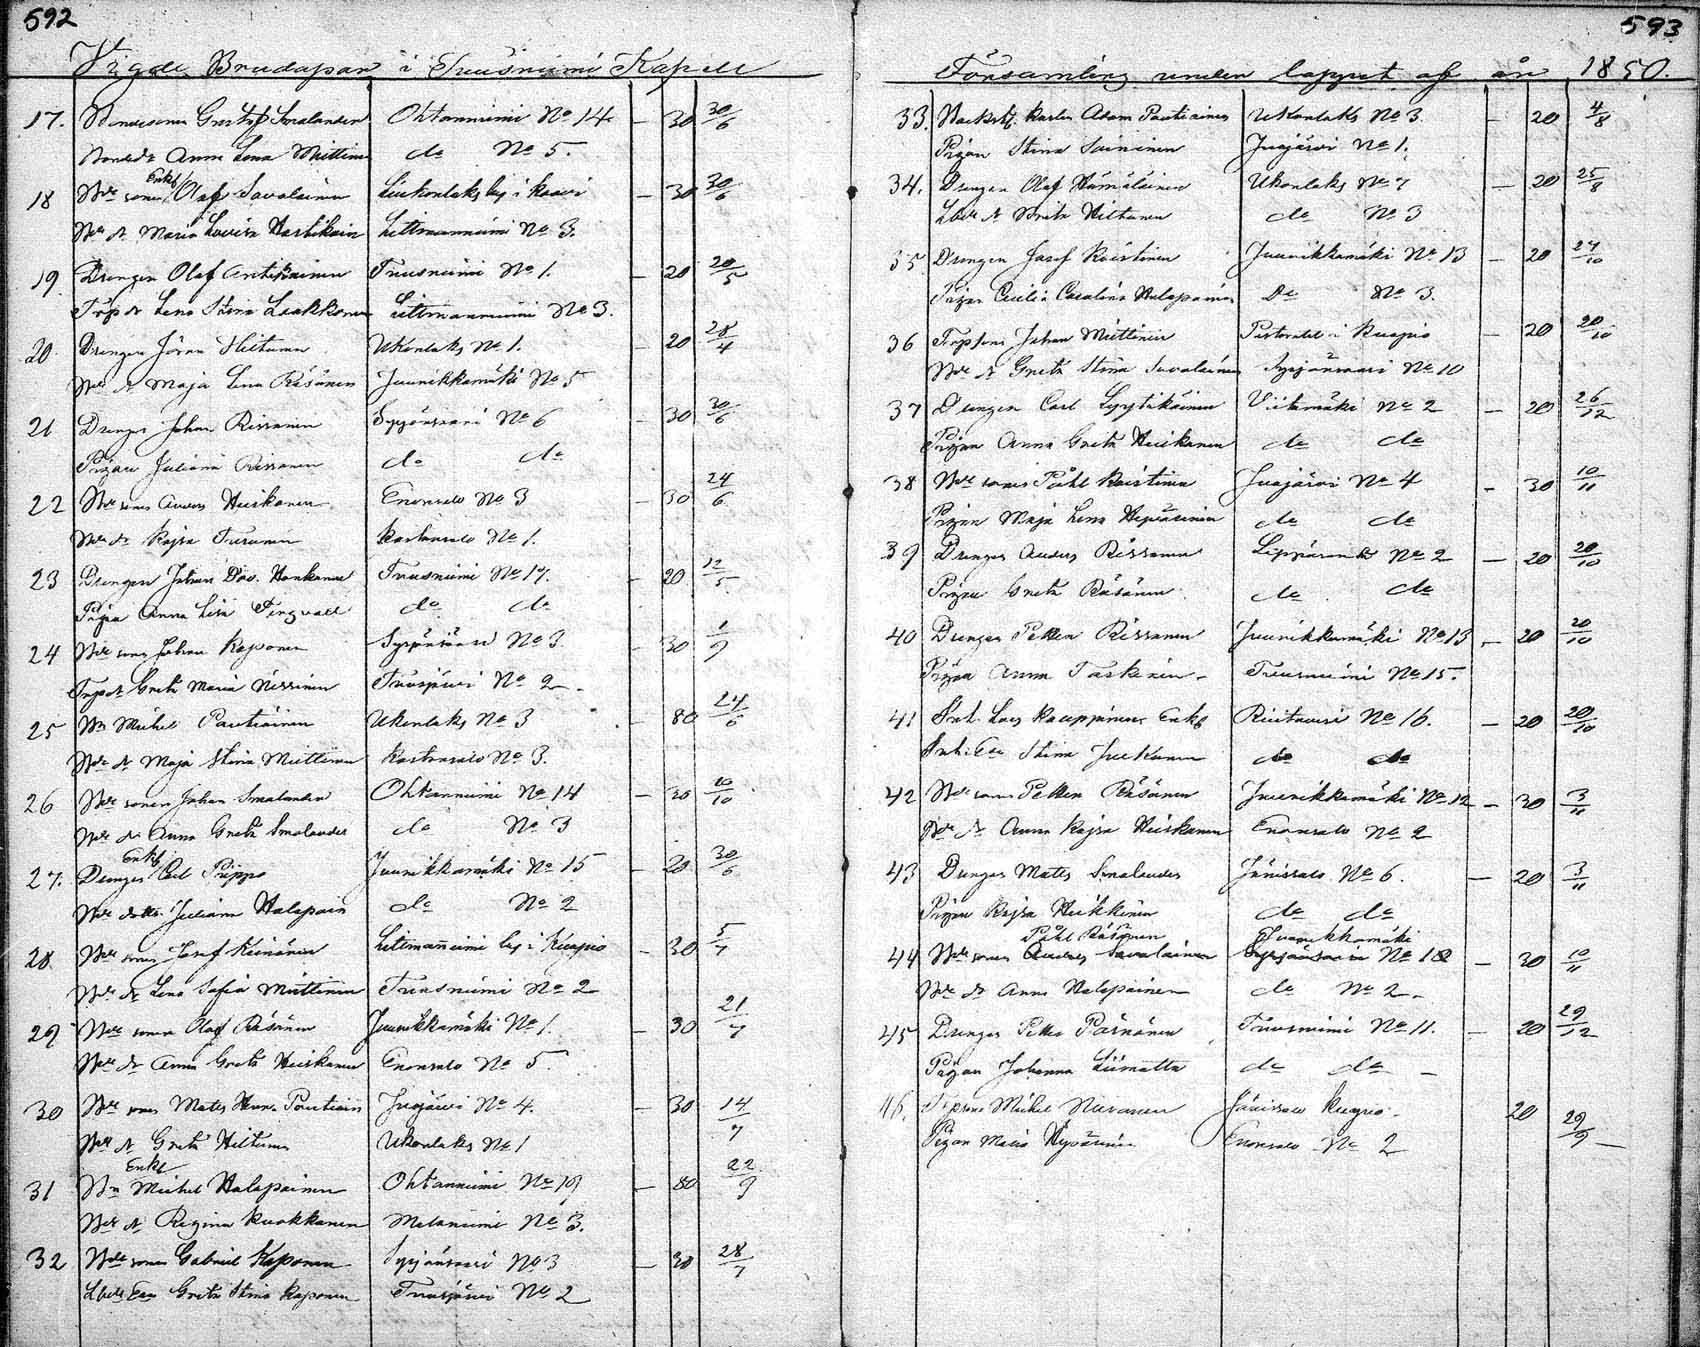 592
Vigde Brudapar i Tuusniemi Kapell
17. Bondesonen Gustaf Smalander Ohtanniemi No 14 - 30 30/6
Bonded:r Anna Lena Miettinen do No 5.
18 Bde sonen Enkl Olaf Savolainen by i Kaavi - 30 30/6
Bde dr Maria Lovisa Hartikain Litmanniemi No 3.
19. Drengen Olaf Antikainen Tuusniemi No 1. - 20 20/5
Torp dr Lena Stina Laakkonen Litmanniemi No 3.
20. Drengen Jöran Hiltunen Ukonlaks No 1. - 20 28/4
Bde dr Maja Lena Räsänen Juurikkamäki No 5
21 Drengen Johan Rissanen Syrjänsaari No 6 - 30 30/6
Pigan Juliana Rissanen do do
22 Bde sonen Anders Heiskanen Enonsalo No 3 - 30 24/6
Bde dr Kajsa Turunen No 1.
23 Drengen Johan Dav. Honkanen Tuusniemi No 17. - 20 12/5
Pigan Anna Lisa Tengvall do do
24 Bde sonen Johan Koponen Syrjänsaari No 3 - 30 1/9
Torp dr Greta Maria Nissinen Tuusjärvi No 2 -
25 Bn Michel Pautiainen Ukonlaks No 3 - 80 24/6
Bde dr Maja Stina Miettinen No 3.
26 Bde sonen Johan Smalander Ohtanniemi No 14 - 30 10/10
Bde dr Anna Greta Smalander do No 3
27. Drengen Enkl Carl Pirppo Juurikkamäki No 15 - 20 30/6
Bde dottr. Juliana Halapain do No 2
28 Bde sonen Josef Keinänen Litmanniemi by i Kuopio - 30 5/7
Bde dr Lena Sofia Miettinen Tuusniemi No 2
29 Bde sonen Olaf Räsänen Juurikkamäki No 1. - 30 21/7
Bde dr Anna Greta Heiskanen Enonsalo No 5
30 Bde sonen Mats Henr. Pautiain Juojärvi No 4. - 30 14/7
Bde dr Greta Hiltunen Ukonlaks No 1
31 Bn Enkl Michel Halapainen Ohtanniemi No 19 - 80 22/9
Bde dr Regina Kuokkanen Melaniemi No 3.
32 Bde sonen Gabriel Koponen Syrjänsaari No 3 - 30 28/7
Enk Greta Stina Koponen Tuusjärvi No 2
593
Församling under loppet af år 1850.
33. Karl Adam Pautiainen Ukonlaks No 3. - 20 4/8
Pigan Stina Saininen Juojärvi No 1.
34. Drengen Olaf Hämäläinen Ukonlaks No 7 - 20 25/8
dr Brita Hiltunen do No 3
35 Drengen Josef Räistinen Juurikkamäki No 13 - 20 27/10
Pigan Cecilia Catarina Halapainen Do No 3.
36 Torpson Johan Miettinen i Kuopio - 20 20/10
Bde dr Greta Stina Savolainen Syrjänsaari No 10
37 Drengen Carl Lyytikäinen Viitamäki No 2 - 20 26/12
Pigan Anna Greta Heiskanen do do
38 Bde sonen Påhl Räistinen Juojärvi No 4 - 30 10/11
Pigan Maja Lena do do
39 Drengen Anders Rissanen No 2 - 20 20/10
Pigan Greta Räsänen do do
40 Drengen Petter Rissanen Juurikkamäki No 13 - 20 20/10
Pigan Anna Taskinen - Tuusniemi No 15.
41 Inh. Lars Kauppinen Enkl No 16. - 20 20/10
Inh. Enk Stina Juukanen do do
42 Bde sonen Petter Räsänen Juurikkamäki No 12 - 30 3/11
Bde dr Anna Kajsa Heiskanen Enonsalo No 2
43 Drengen Mats Smalander Jänissalo No 6. - 20 3/11
Pigan Kajsa Heikkinen do do
Påhl Räsänen Juurikkamäki
44 Bde sonen Anders Savolainen Syrjänsaari No 12 - 30 10/11
Bde dr Anna Halapainen do No 2 -
45 Drengen Petter Pärnänen Tuusniemi No 11. - 20 29/12
Pigan Johanna Liimatta do do -
46. Torpson Michel Nuranen Jänissalo Kuopio - 20 29/9 -
Pigan Maria Hyvärinen Enonsalo No 2